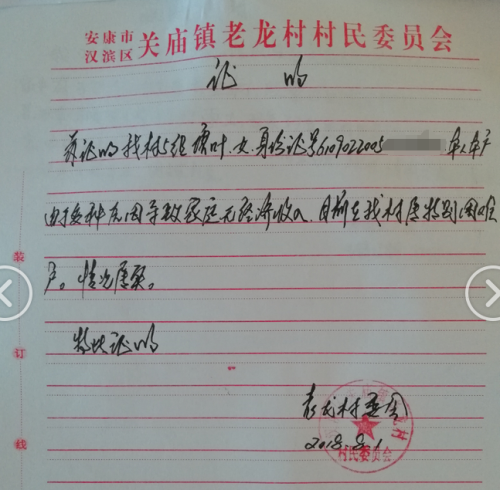 安康市
汉滨区 关庙镇老龙村村民委员会
证明
兹证明我村5组唐叶,女,身份证号6109022005 ,
由于种原因导致家庭无经济收入,目前在我村属特别困难
户。情况属实。
特此证明
老龙村委会
2018.8.1
村民委员会
装
订
线